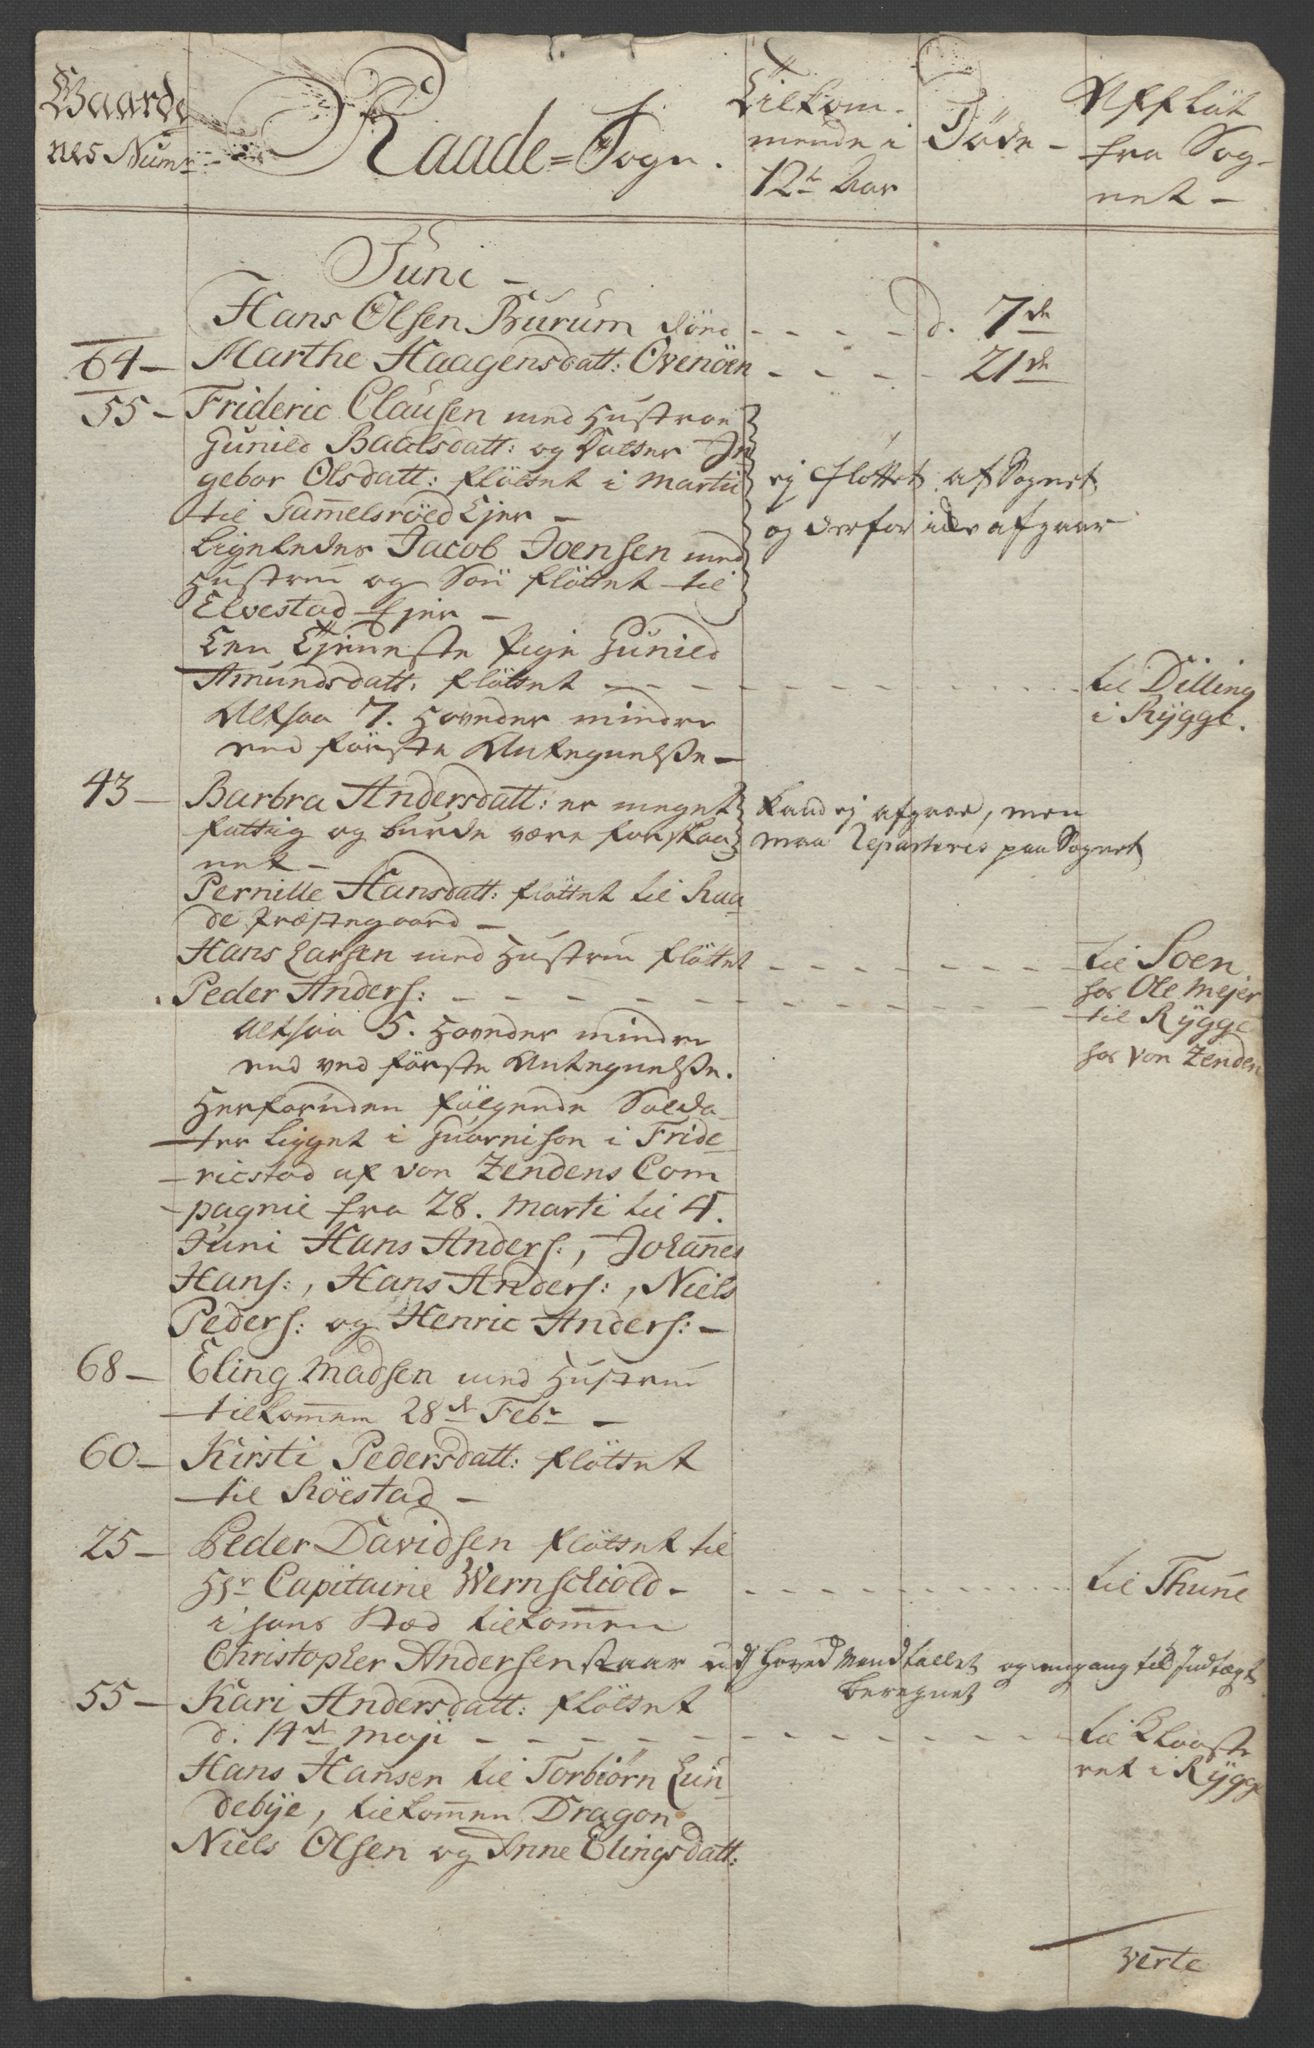 Gaarde
nes Numr
Raade-Sogn.
Tilkom-
mende i
12te Aar
Döde -
Afflöt
fra Sog-
net -
Juni -
Hans Olsen Burum döde - - - - d. 7de
64 - Marthe Haagensdatt: Ovenöen - - - - 21de
55 - Frideric Clausen med Hustroe
Gunild Baalsdatt: og Datter In
gebor Olsdatt: flöttet i Martii
til Gam̄elsröed Ejer -
ej flöttet af Sognet
og derfor afgaar
Ligeledes Jacob Joensen med
Hustrue og Sön flöttet til
Elvestad Ejer -
Een Tjeneste Pige Gunild
Amundsdatt. flöttet - - - - til Dilling
i Rÿgge.
Altsaa 7. Hoveder mindre
end förste Antegnelse -
43 - Barbra Andersdatt: er meget
fattig og burde være forskaa
net -
kand ej afgaae, men
maa Reparteris paa Sognet
Pernille Hansdatt: flöttet til Raa-
de Præstegaard -
Hans Larsen med Hustrue flöttet - - - - til Soen
hos Ole Mejer
Peder Anders: - - - - til Rÿgge
hos von Zenden
Altsaa 5. Hoveder mindre
end ved förste Antegnelse.
Herforuden fölgende Solda-
ter ligget i Guarnison i Fride-
ricstad af von Zendens Com
pagnie fra 28. Marti til 4.
Juni Hans Anders:, Johan̄es
Hans:, Hans Anders:, Niels
Peders: og Henric Anders: -
68 - Eling Madsen med Hustrue
tilkom̄en 28de Febr -
60 - Kirsti Pedersdatt: flöttet
til Röestad -
25 - Peder Davidsen flöttet til
Hr Capitaine Wernschiold - - - - til Thune
i hans Sted tilkom̄en
Christopher Andersen staar ud Hoved Mandtallet og engang til Indtægt
beregnet
55 - Kari Andersdatt: flöttet
d. 14de Maji - - - - til Klooste
ret i Rÿgge
Hans Hansen til Torbiörn Lun
debÿe, tilkom̄en Dragon
Niels Olsen og Anne Elingsdatt:
verte